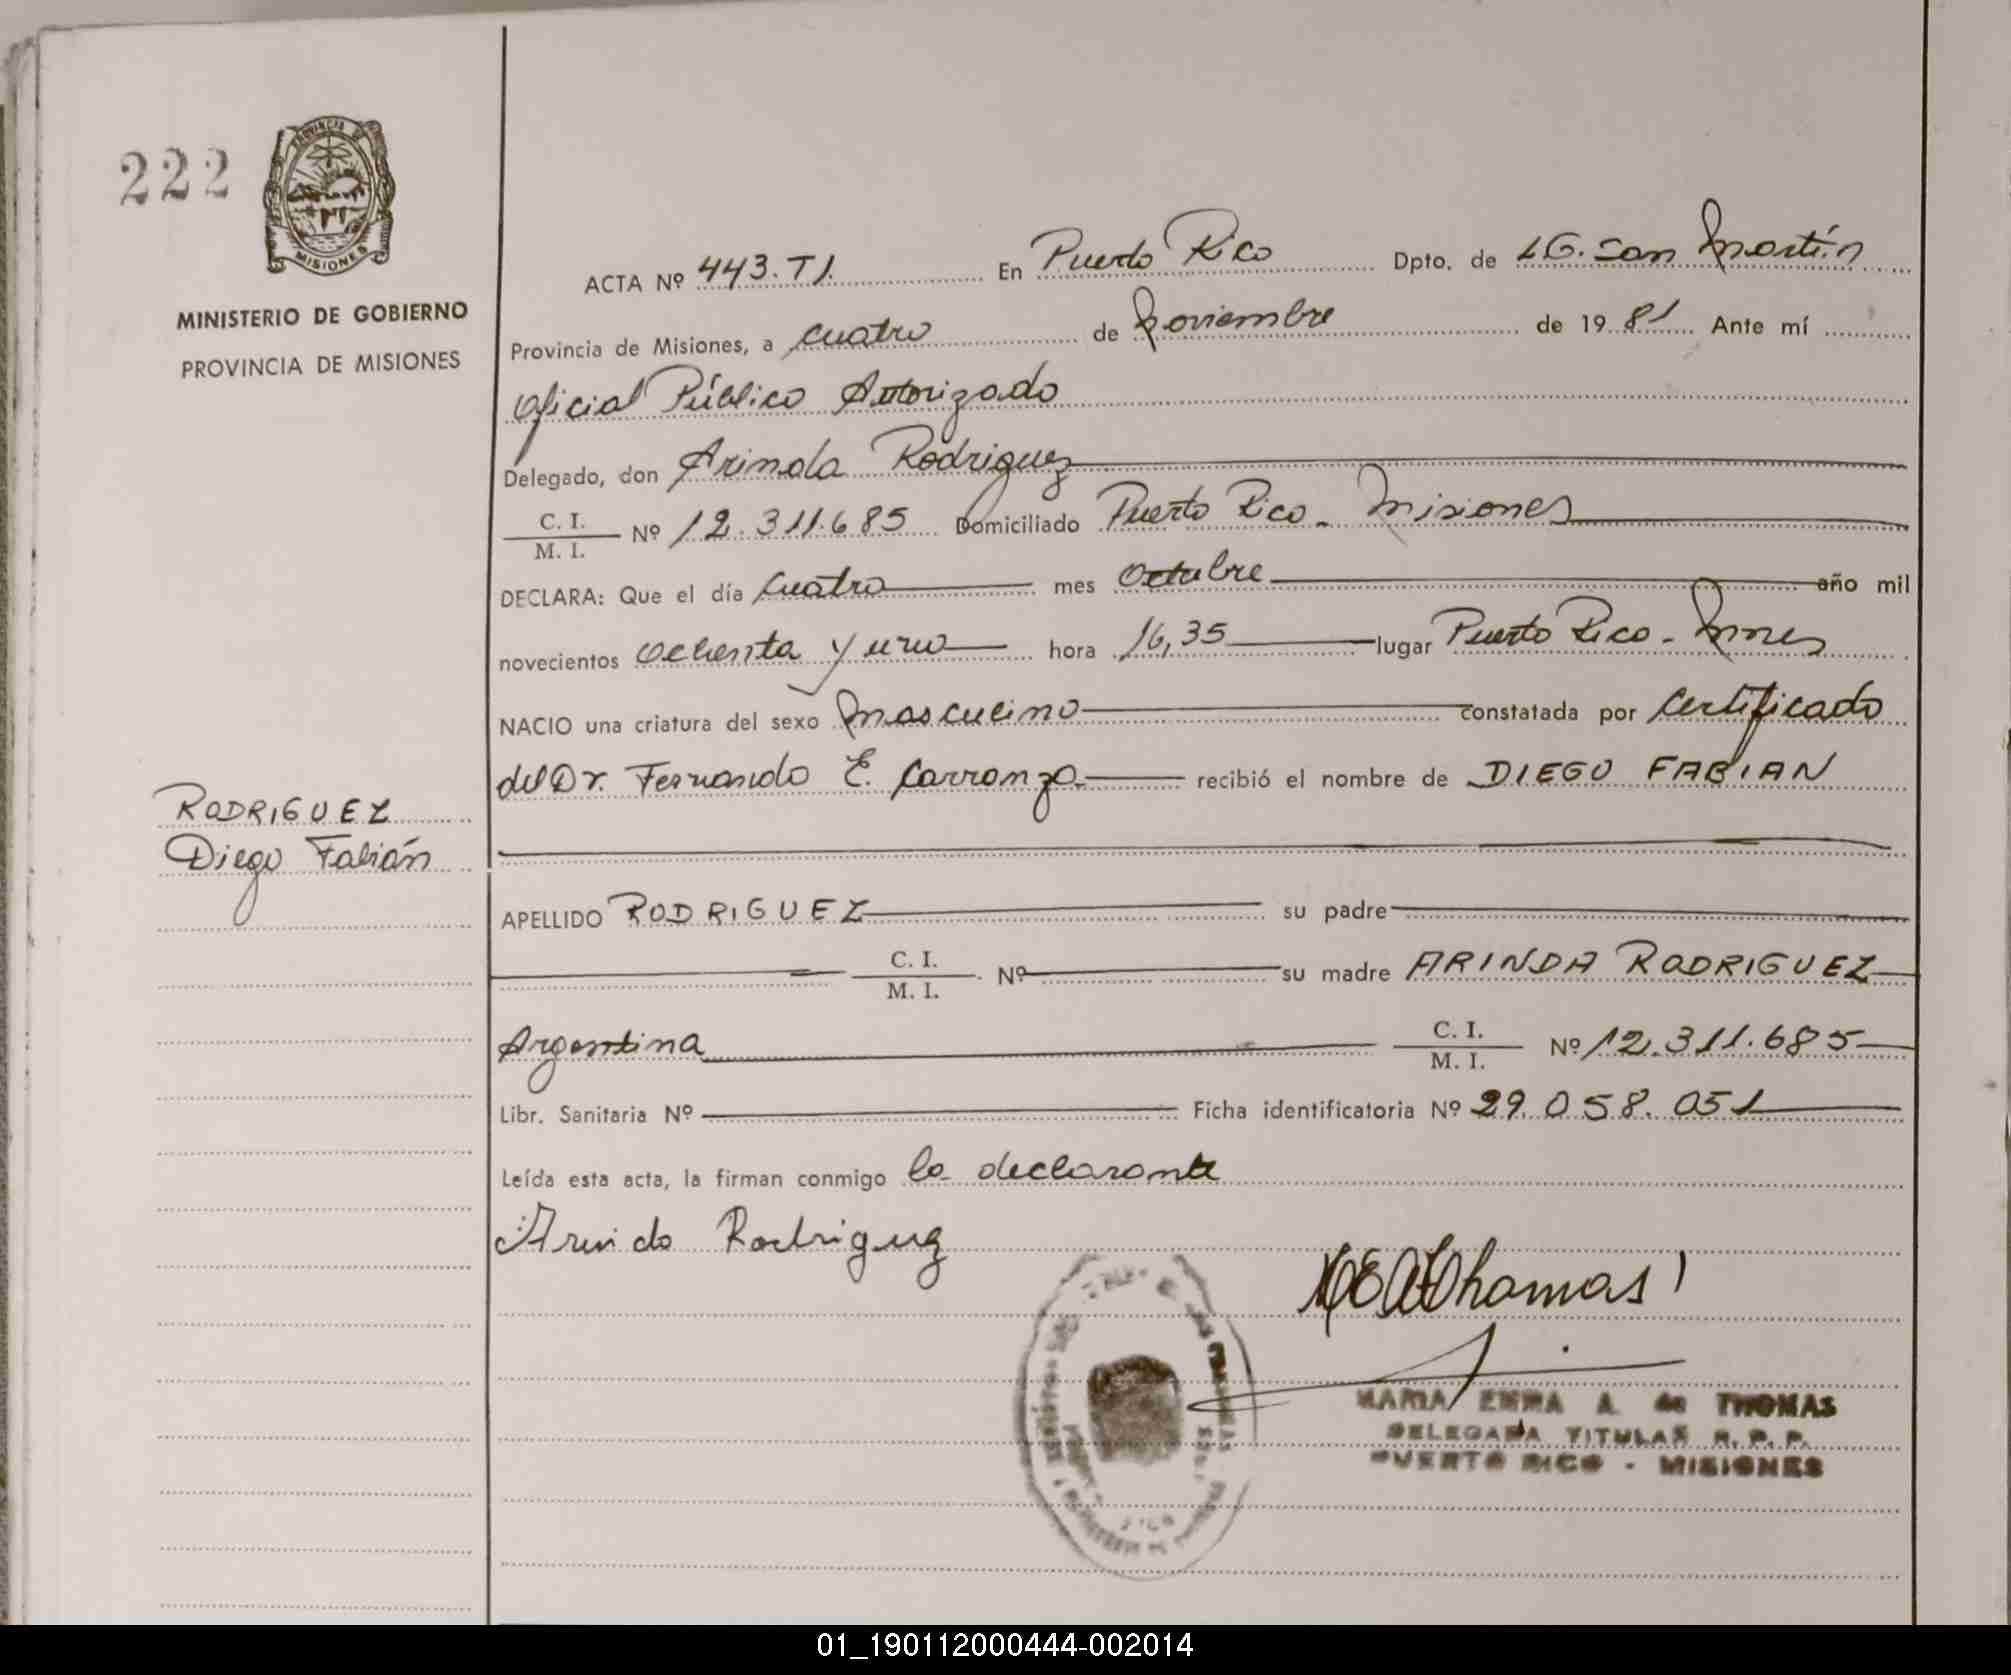 222
PROVINCIA DE
MISIONES
MINISTERIO DE GOBIERNO
PROVINCIA DE MISIONES
RODRIGUEZ
Diego Fabián
ACTA Nº 443. TI. En Puerto Rico Dpto. de LG. San Martín
Provincia de Misiones, a cuatro de Noviembre de 19 81 Ante mí
Oficial Público Autorizado
Delegado, don Arinda Rodriguez
C. I.
M. I. Nº 12.311.685 Domiciliado Puerto Rico - Misiones
DECLARA: Que el día cuatro mes Octubre año mil
novecientos ochenta y uno hora 16,35 lugar Puerto Rico - Mnes
NACIO una criatura del sexo masculino constatada por certificado
del Dr. Fernando E. Carranza recibió el nombre de DIEGO FABIAN
APELLIDO RODRIGUEZ su padre
C. I.
M. I. Nº su madre ARINDA RODRIGUEZ
Argentina C. I.
M. I. Nº 12.311.685
Libr. Sanitaria Nº Ficha identificatoria Nº 29.058.051
Leída esta acta, la firman conmigo la declarante
Arindo Rodriguez
MEAThomas
MARIA EMMA A. de THOMAS
DELEGADA TITULAR R. P. P.
PUERTO RICO - MISIONES
01_190112000444-002014